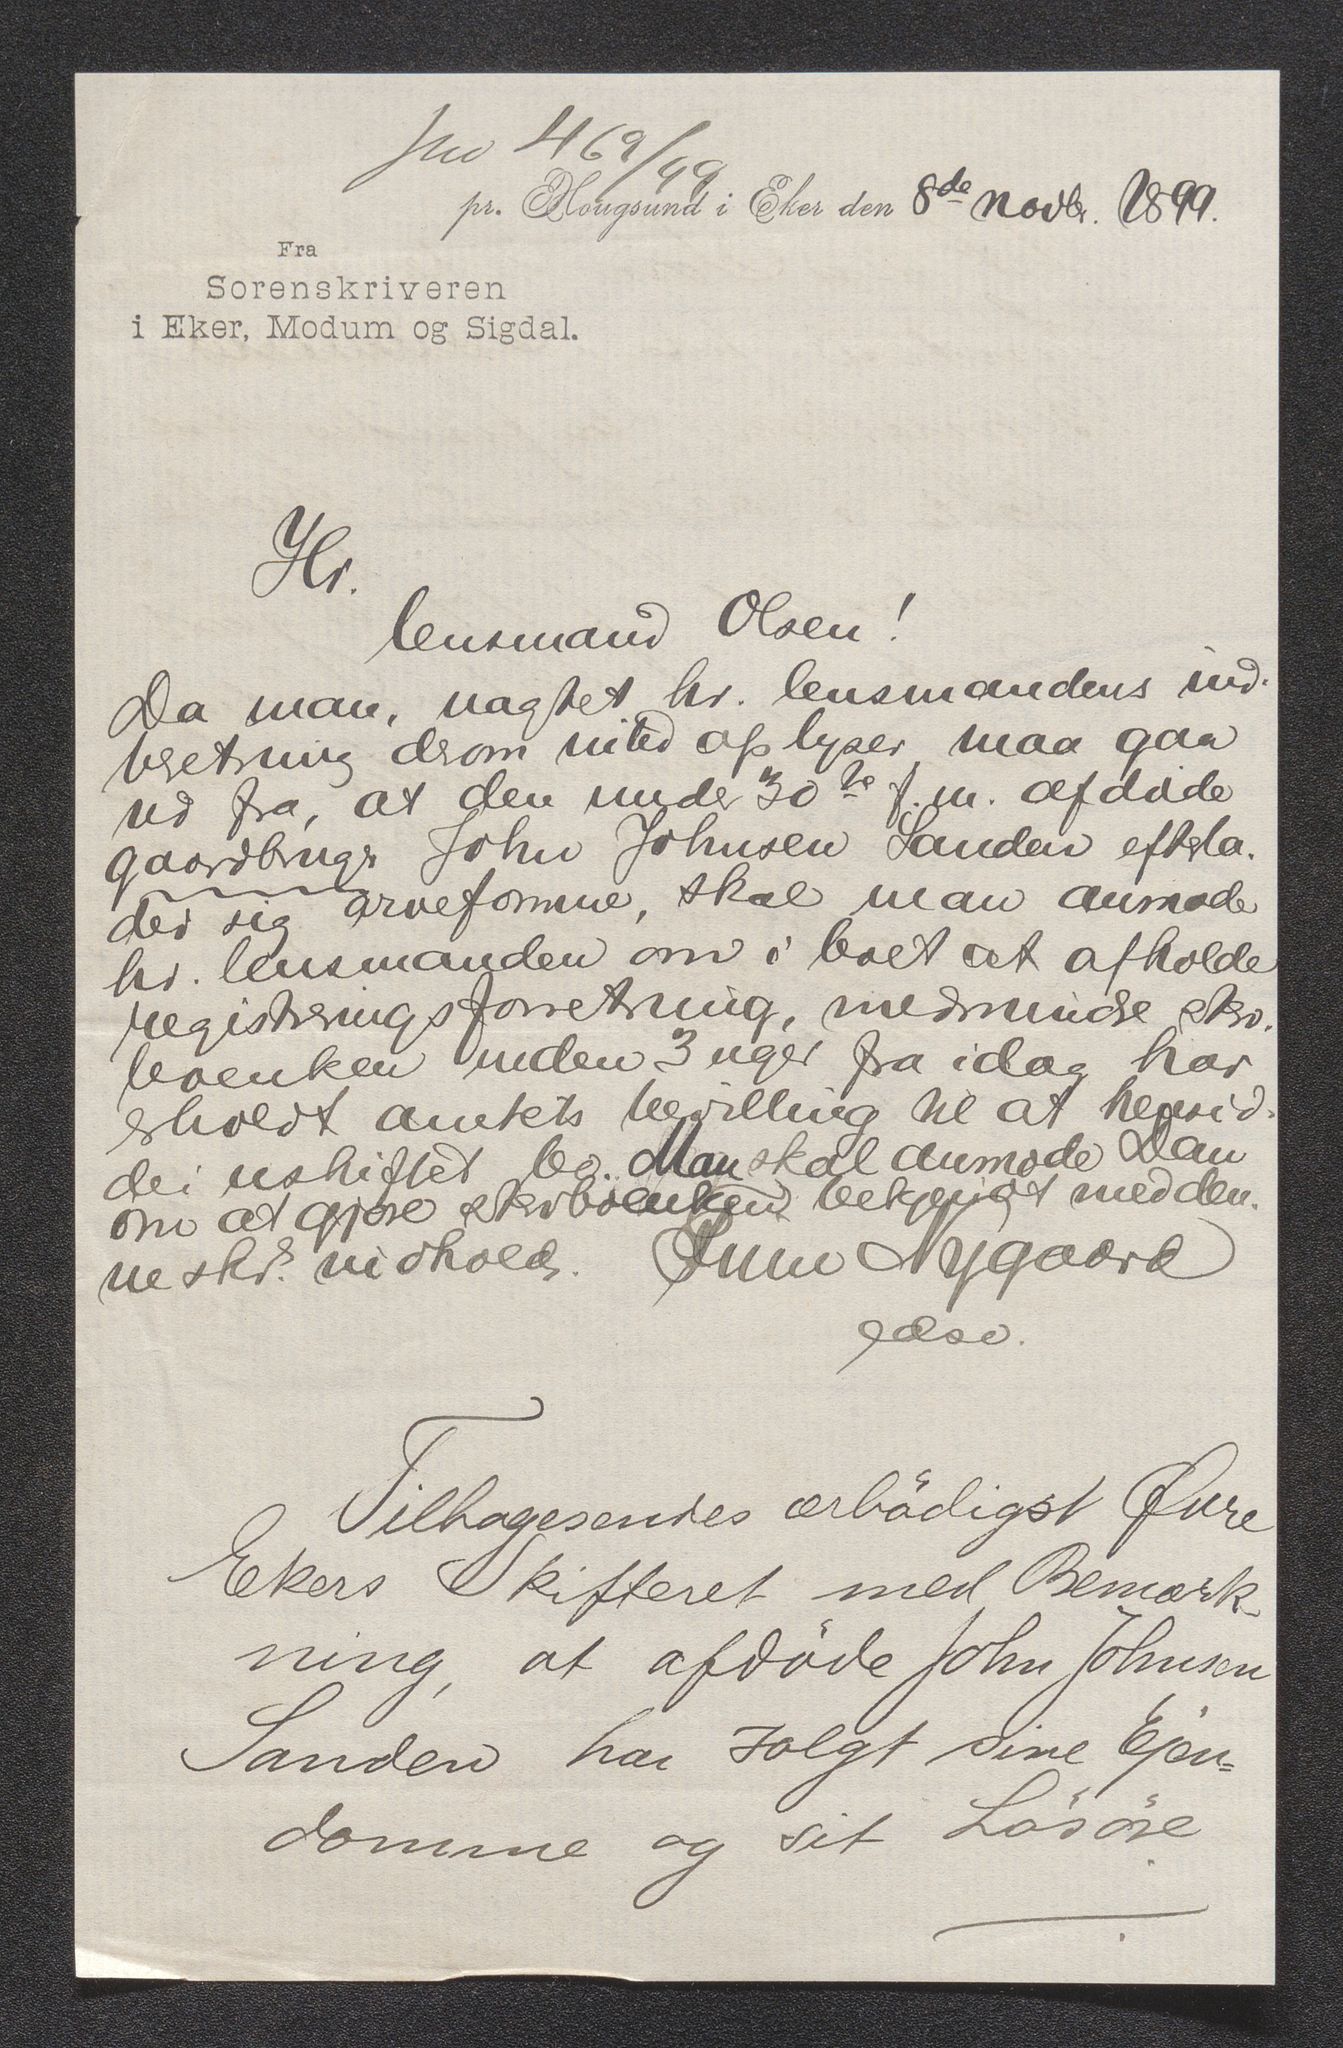 Jno 469/99
pr. Hougsund i Eker den 8de Novbr. 1899.
Fra
Sorenskriveren
i Eker, Modum og Sigdal.
Hr.
lensmand Olsen!
Da man, uagtet hr. lensmandens ind-
beretning derom intet oplyser, maa gaa
ud fra, at den under 30te f. m. afdøde
gaardbruger John Johnsen Sanden efterla-
der sig arveformue, skal man anmode
hr. lensmanden om i boet at afholde
registreringsforretning, medmindre efter-
levenken inden 3 uger fra idag har
erholdt amtets bevilling til at hensid-
de i uskiftet bo. Man skal anmode Dem
om at gjøre enken bekjendt med den-
ne skr. indhold. Nygaard
edsv.
Tilbagesendes ærbödigst Øvre
Ekers Skifteret med Bemærk-
ning, at afdöde John Johnsen
Sanden har solgt sine Ejen-
domme og sit Lösöre